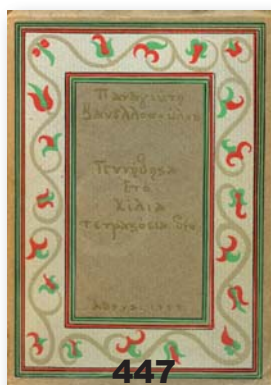 Παναγιώτη
Κανελλοπούλου
Γεννήθηκα
Στὸ
Χίλια
τετρακόσια δύο
447